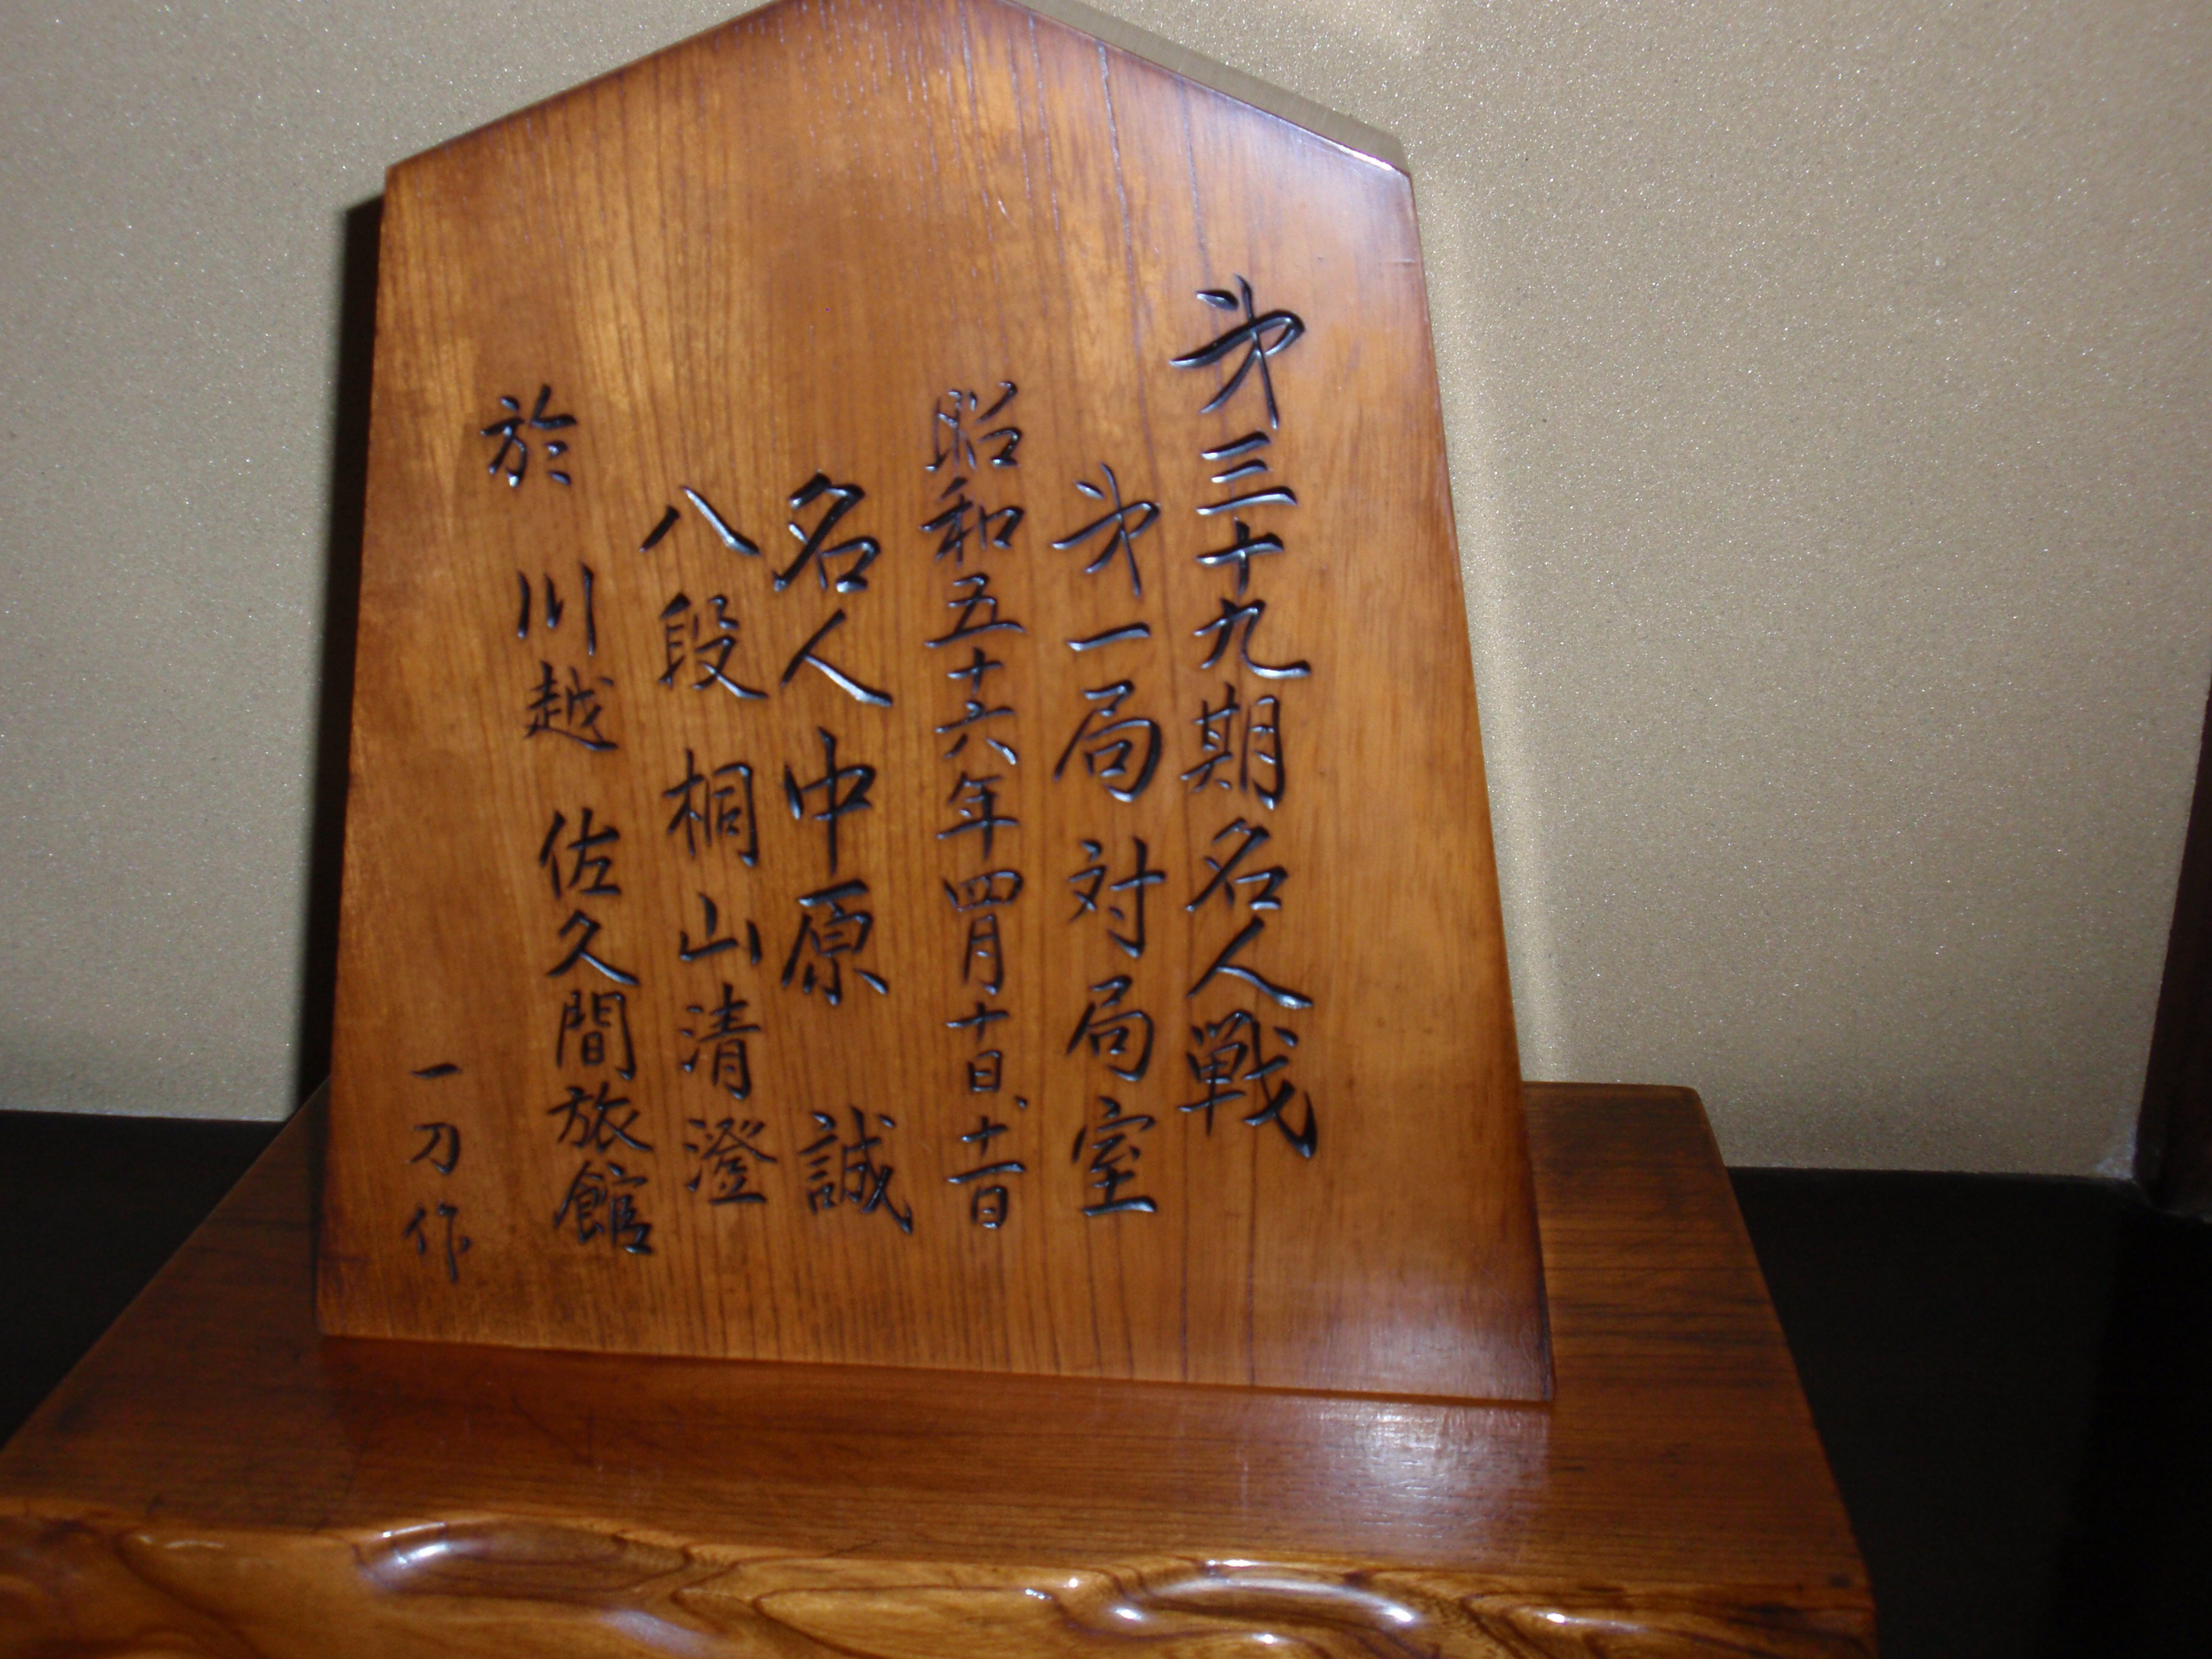 第三十九期名人戦
第一局対局室
昭和五十六年四月十日、十一日
名人中原 誠
八段 桐山清澄
於 川越 佐久間旅館
一刀作